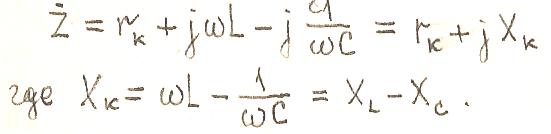 Ż = r_к + jωL − j 1/ωC = r_к + j X_к
где X_к = ωL − 1/ωC = X_L − X_C .